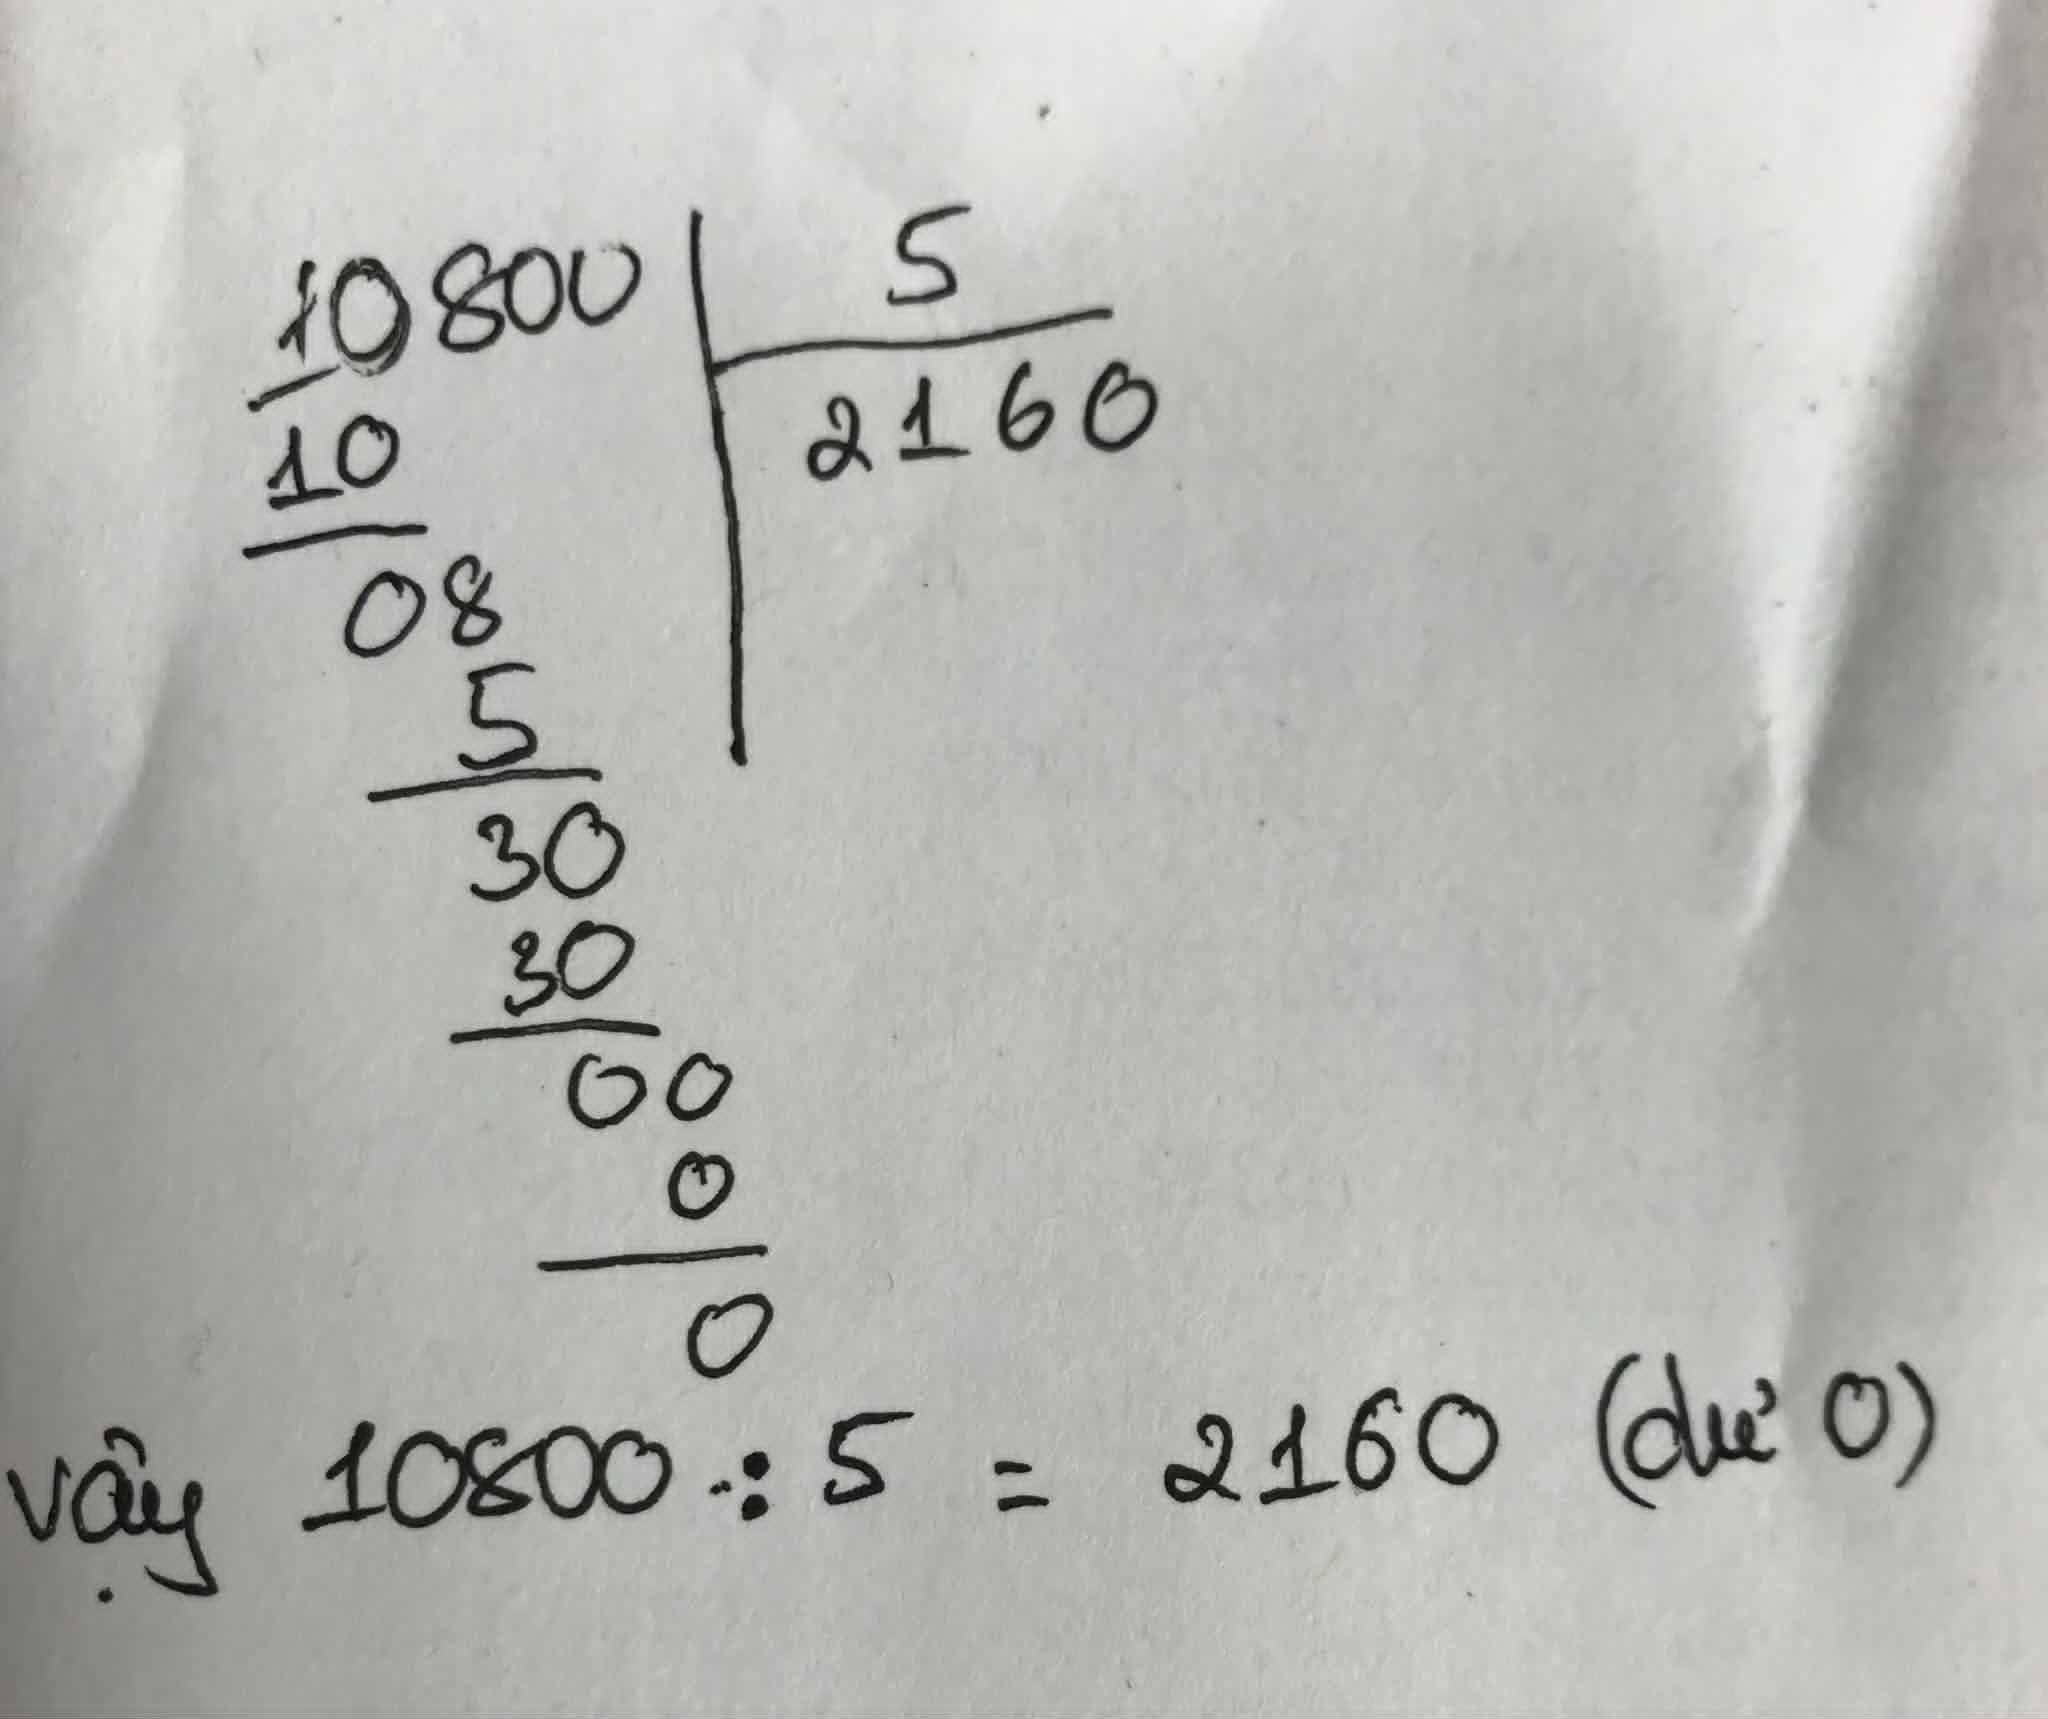 10800 5
2160
10
08
5
30
30
00
0
0
vậy 10800 : 5 = 2160 (dư 0)